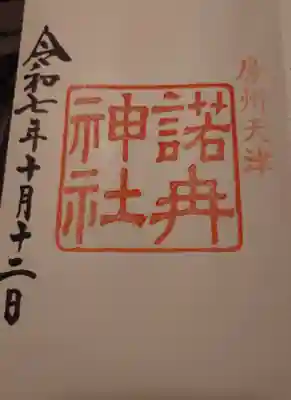 房州天津
諾冉
神社
令和七年十月十二日